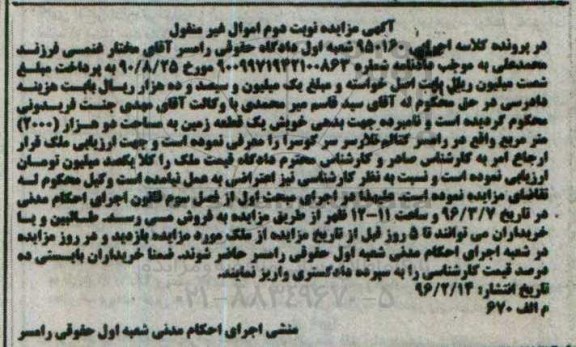 آگهی مزایده نوبت دوم اموال غیر منقول
در پرونده کلاسه اجرایی ۹۵۰۱۶۰ شعبه اول دادگاه حقوقی رامسر آقای مختار غنمی فرزند
محمدعلی به موجب دادنامه شماره ۹۰۰۹۹۷۱۹۴۲۱۰۰۸۶۳ مورخ ۹۰/۸/۲۵ به پرداخت مبلغ
شصت میلیون ریال بابت اصل خواسته و مبلغ یک میلیون و سیصد و ده هزار ریال بابت هزینه
دادرسی در حق محکوم له آقای سید قاسم میر محمدی با وکالت آقای مهدی جنت فریدونی
محکوم گردیده است و نامبرده جهت بدهی خویش یک قطعه زمین به مساحت دو هزار (۲۰۰۰)
متر مربع واقع در رامسر کتالم سر گوسرا را معرفی نموده است و جهت ارزیابی ملک قرار
ارجاع امر به کارشناس صادر و کارشناس محترم دادگاه قیمت ملک را کلا یکصد میلیون تومان
ارزیابی نموده است و نسبت به نظر کارشناسی نیز اعتراضی به عمل نیامده است وکیل محکوم له
تقاضای مزایده نموده است. علیهذا در اجرای مبحث اول از فصل سوم قانون اجرای احکام مدنی
در تاریخ ۹۶/۳/۷ و ساعت ۱۱-۱۲ ظهر از طریق مزایده به فروش می رسد. طالبین و یا
خریداران می توانند تا ۵ روز قبل از تاریخ مزایده از ملک مورد مزایده بازدید و در روز مزایده
در شعبه اجرای احکام مدنی شعبه اول حقوقی رامسر حاضر شوند. ضمنا خریداران بایستی ده
درصد قیمت کارشناسی را به سپرده دادگستری واریز نمایند.
تاریخ انتشار: ۹۶/۲/۱۴
م الف ۶۷۰
منشی اجرای احکام مدنی شعبه اول حقوقی رامسر